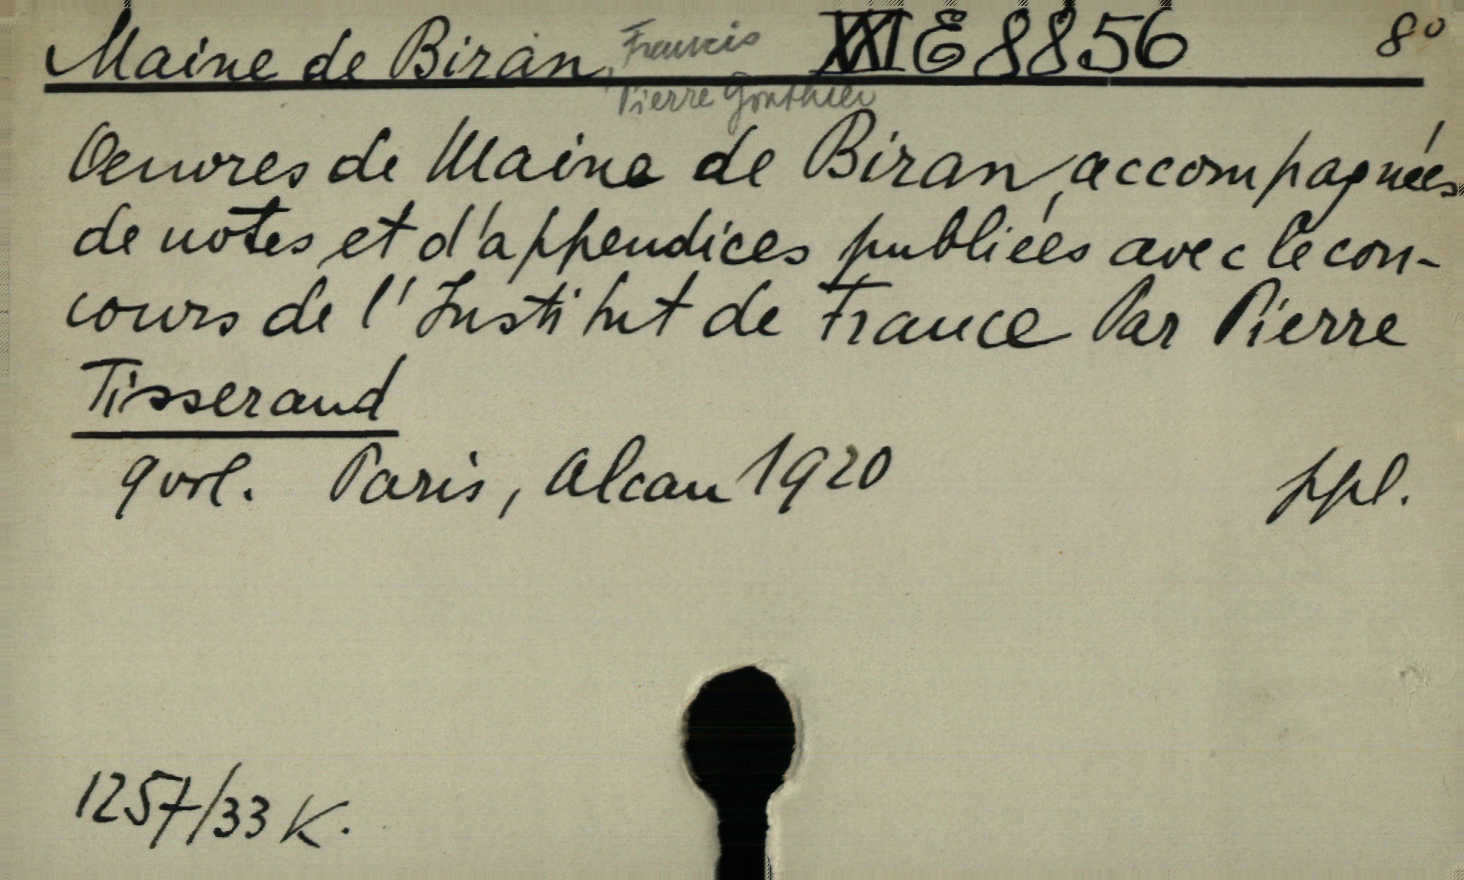 Maine de Biran, Francis XXI E 8856 8°
Pierre Gonthier
Oeuvres de Maine de Biran, accompagnées
de notes et d'appendices publiées avec le con-
cours de l'Institut de France Par Pierre
Tisserand
9 vol. Paris, Alcan 1920 ppl.
1257/33 K.